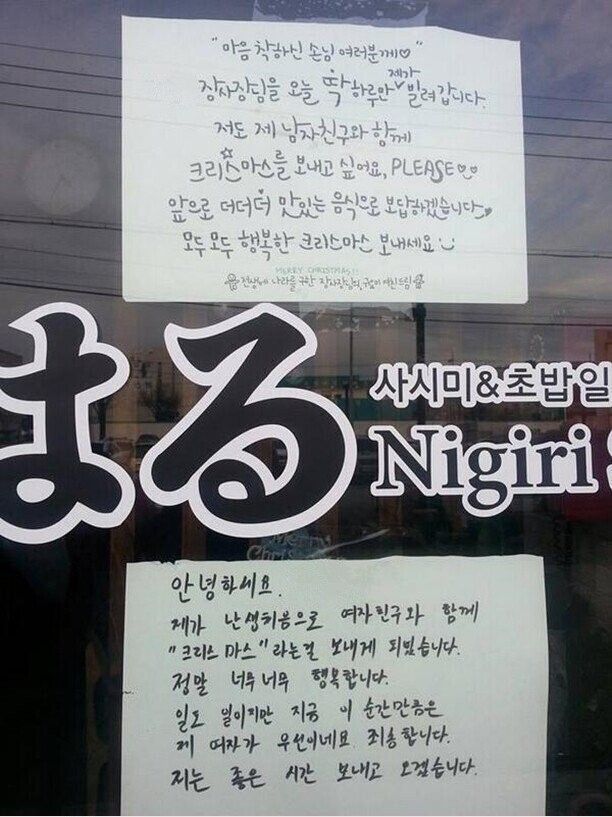 "마음 착하신 손님 여러분께♡"
장사장님을 오늘 딱 하루만 제가 빌려 갑니다.
저도 제 남자친구와 함께
크리스마스를 보내고 싶어요, PLEASE♡♡
앞으로 더더더 맛있는 음식으로 보답하겠습니다
모두모두 행복한 크리스마스 보내세요
MERRY CHRISTMAS!!
전생에 나라를 구한 장사장님의 여친드림
はる
사시미&초밥 일
Nigiri
안녕하세요.
제가 난생처음으로 여자친구와 함께
"크리스마스"라는걸 보내게 되었습니다.
정말 너무너무 행복합니다.
일도 일이지만 지금 이 순간만큼은
제 여자가 우선이네요. 죄송합니다.
저는 좋은 시간 보내고 오겠습니다.